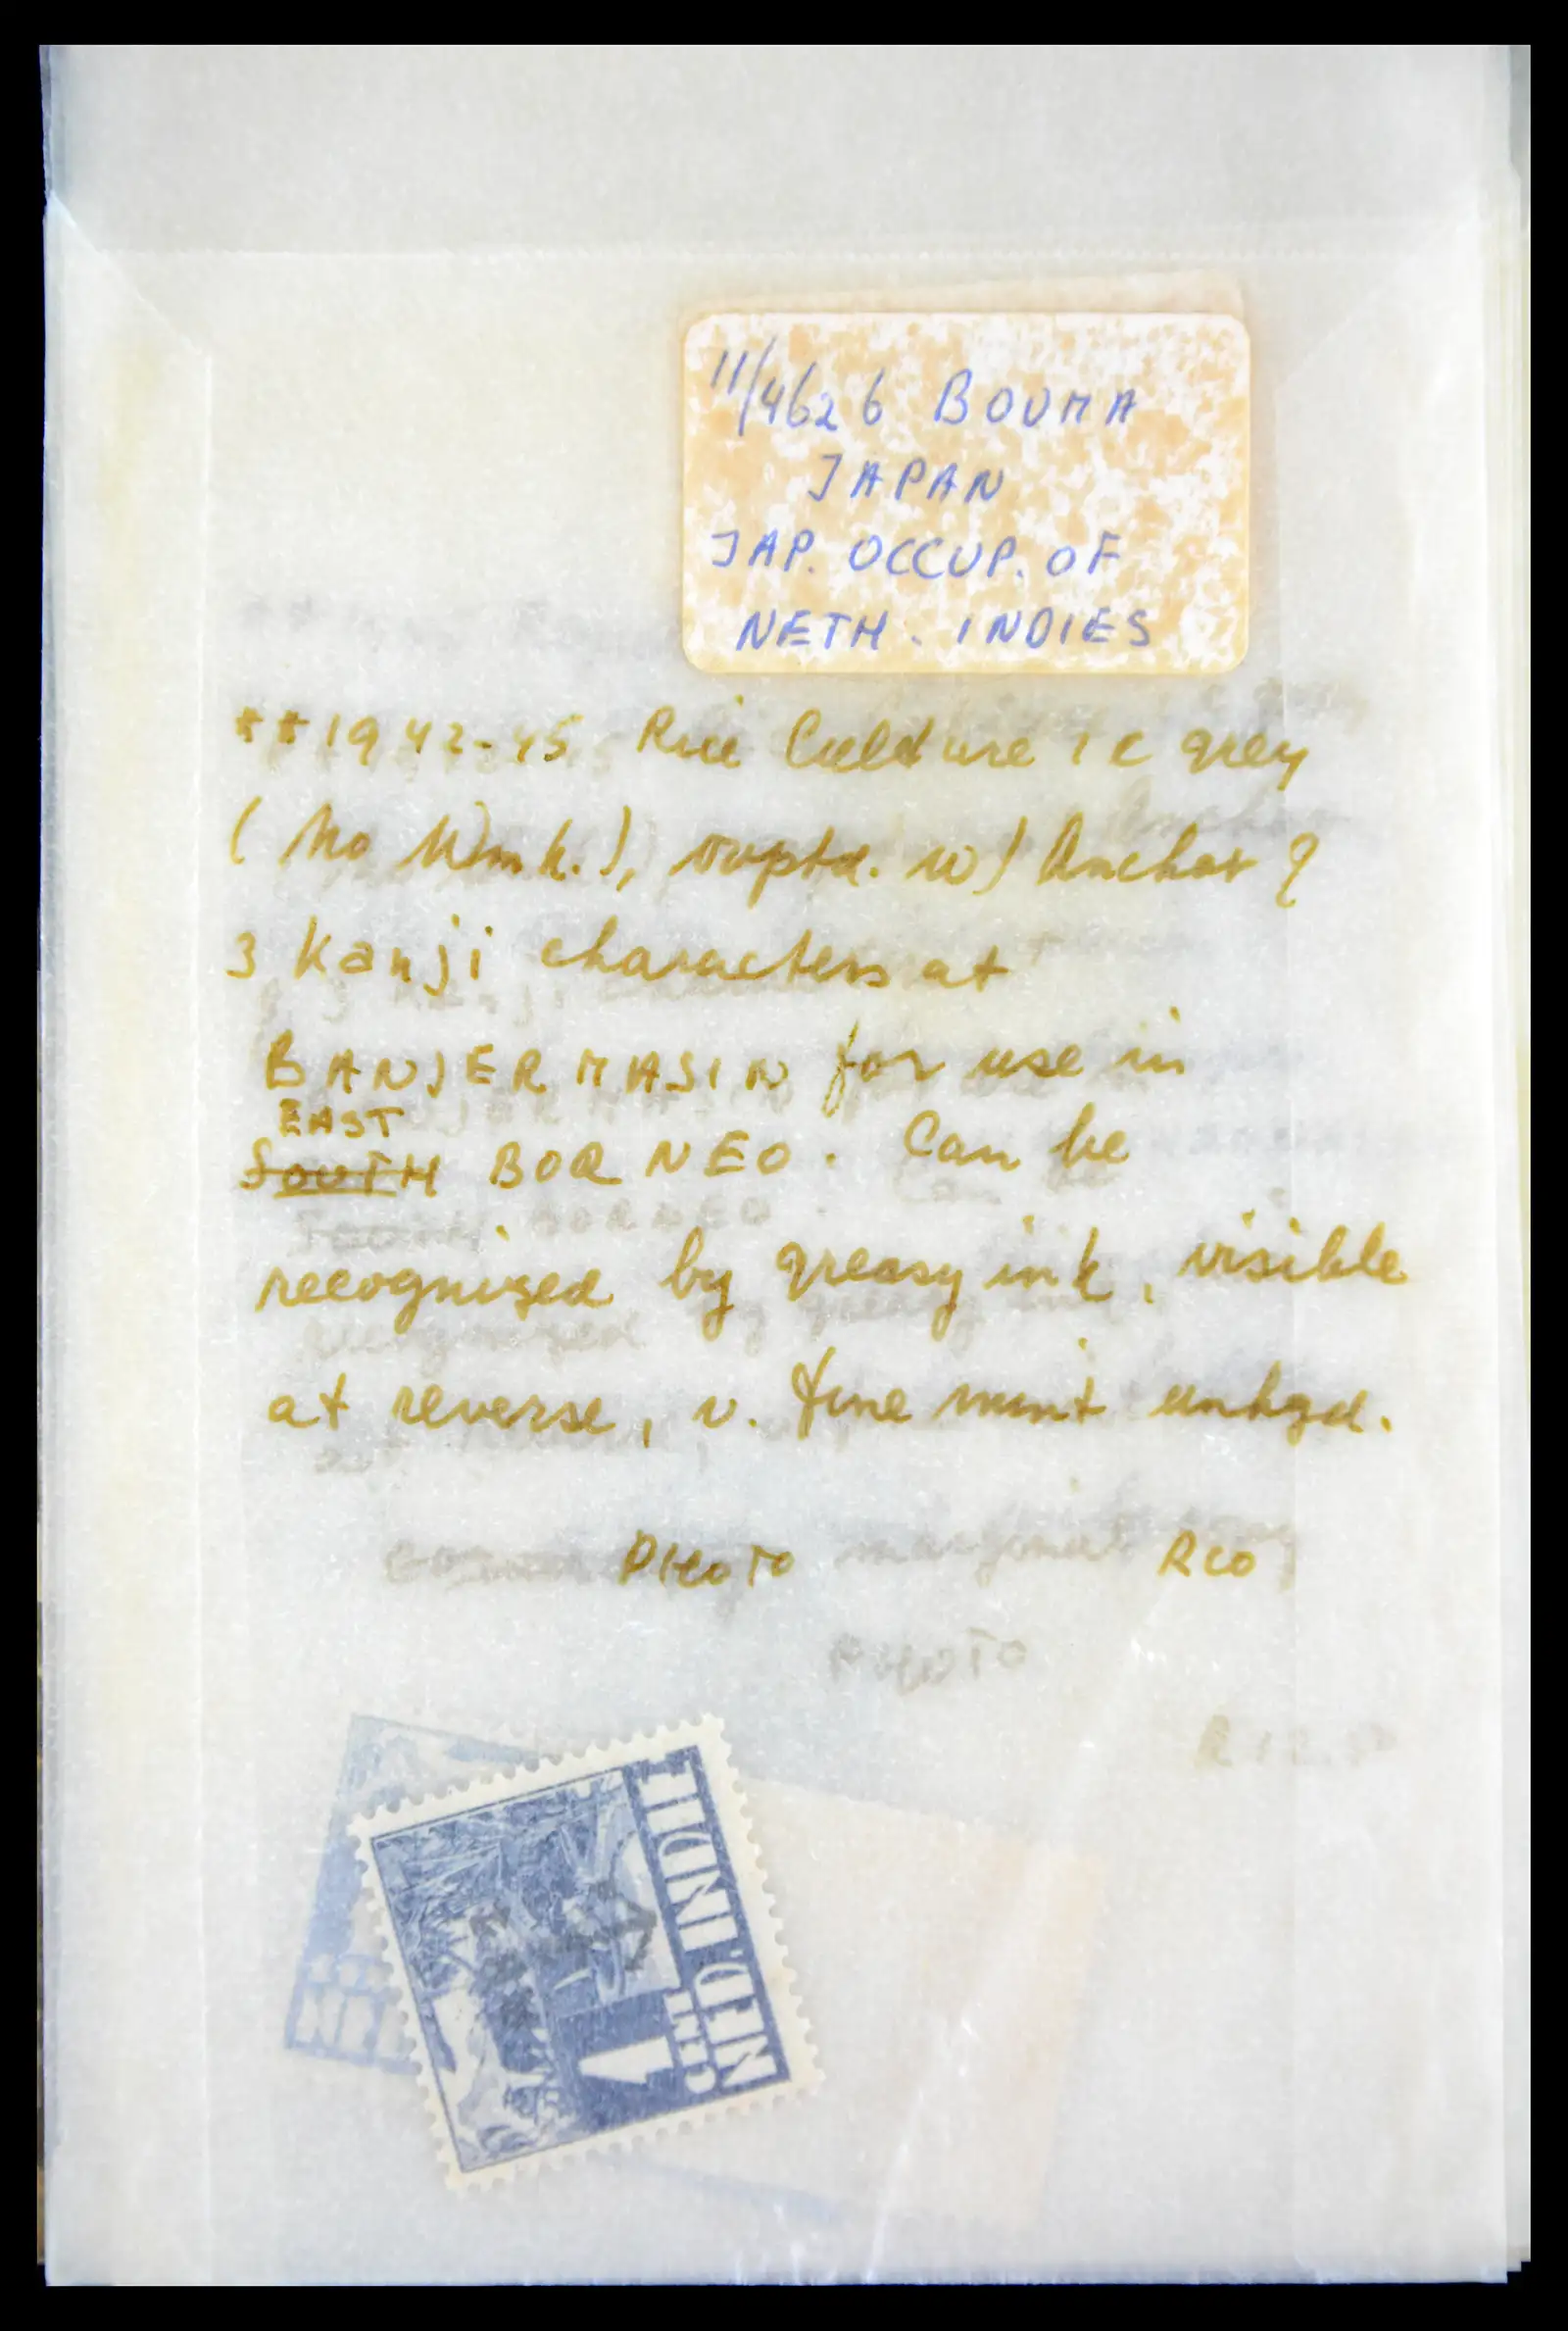 11/4626 BOUMA
JAPAN
JAP. OCCUP. OF
NETH. INDIES
**1942-45 Rice Culture 1 c grey
(No Wmk.), ovptd. w/ Anchor &
3 Kanji characters at
BANJERMASIN for use in
EAST
SOUTH BORNEO. Can be
recognized by greasy ink, visible
at reverse, v. fine mint unhgd.
marginal
PHOTO
PHOTO
1 CENT
NED. INDIE